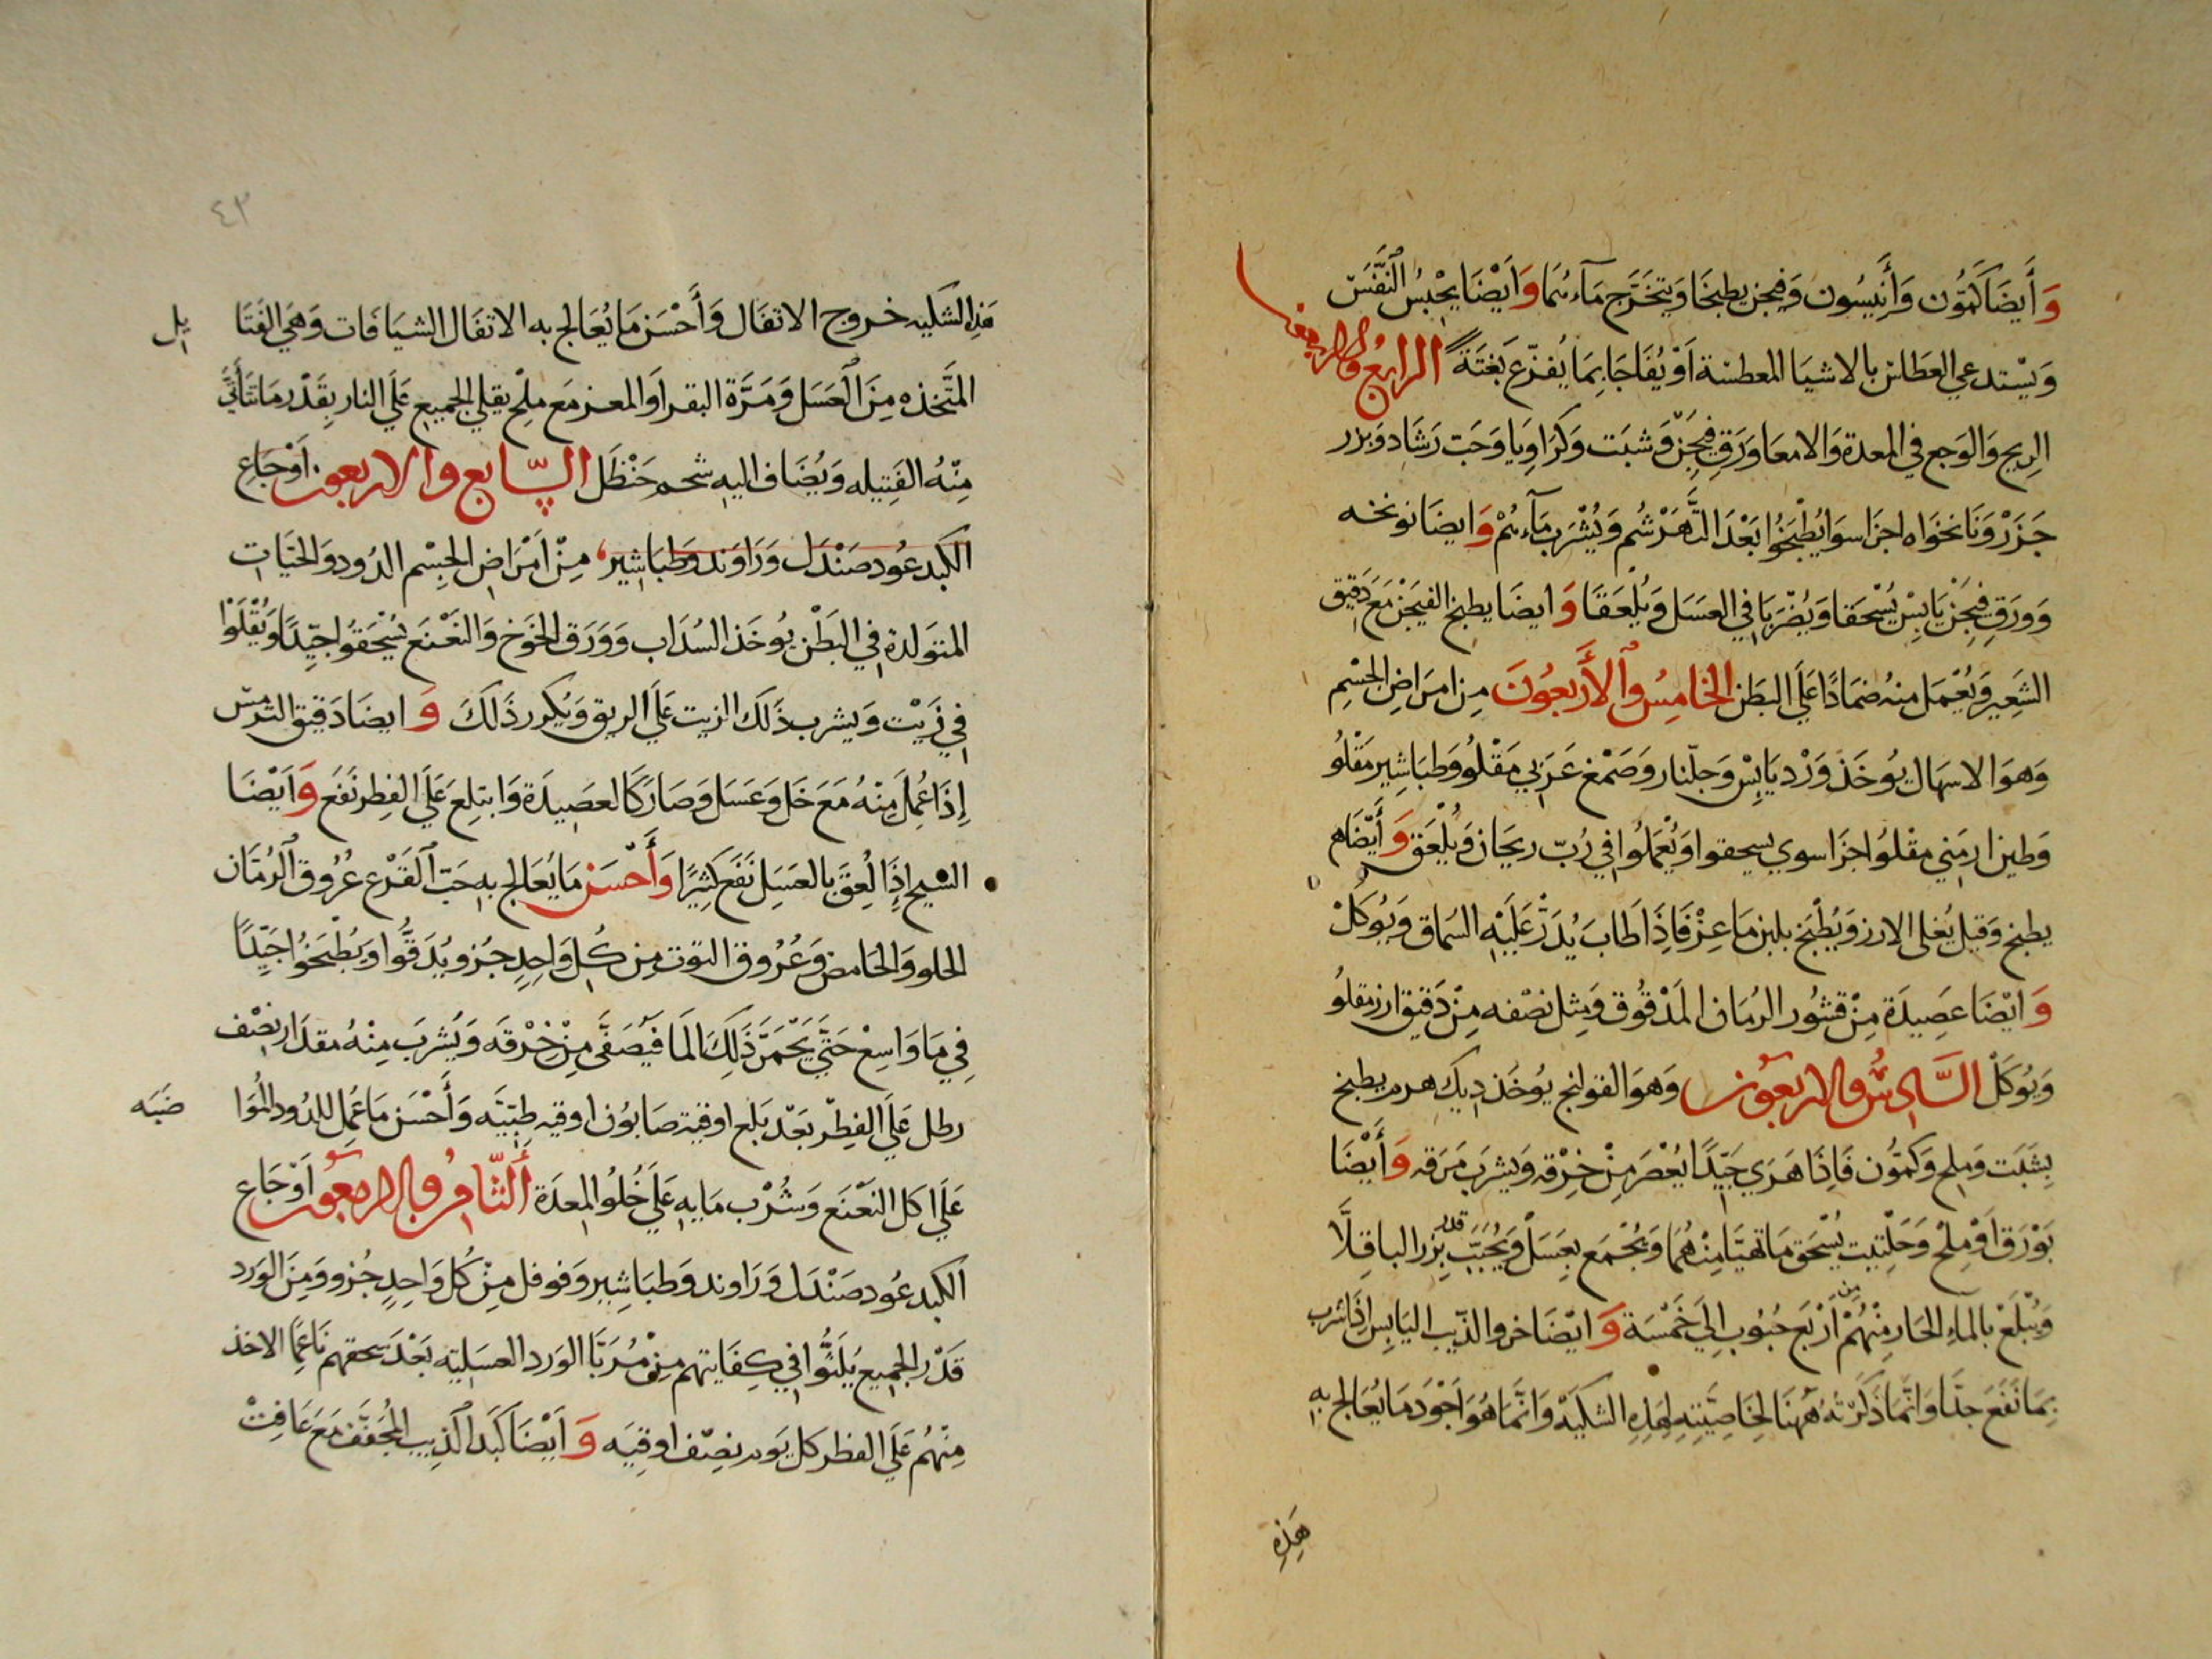 وَأَيضَا كَمُّون وَأَنِيسُون وَفيجن يطبخَا وَيتخَرَّج مَآءهُمَا وَايَضًا يَحْبِسُ النَّفَسَ
وَيسْتدعي العَطَاس بالاشيَا المعطسَة اَوْ يُفَاجَا بِمَا يُفزّع بَغتَةً الرابعُ والاربعون
الرِيح وَالوَجع في المعدة وَالامعَا وَرَق فِيجَن وَشبَت وَكرَاوِيَا وَحَب رَشَاد وَبزر
جَزَرْ وَنَانخوَاه اجزَا سوَا يُطْبَخُوا بَعْدَ التَّهَرْسُم وَيُشْرَب مَآءهُمْ وَايضَا نونخه
وَوَرَق فيجَنْ يَابِسْ يُسْحَقا وَيُضْرَبَا في العسَل وَيُلعَقَا وَايضَا يطبخ الفيجَنْ مَعَ دَقِيق
الشَعِير وَيُعْمَل منهُ ضمَادًا عَلَي البَطن الخامِسُ والأَربعُونَ مِن امرَاضِ الجسْمِ
وَهوَ الاسهَال يوُخَذ وَرْد يَابِسْ وَجلّنار وَصَمْغ عَرَبي مَقْلُو وَطبَاشِير مَقْلُو
وَطين ارمَني مقْلُوا جزَا سوي يسحقوا وَيُعْمَلُوا في رُبّ ريحَان وَيُلْعَق وَأَيْضًا م
يطبخ وَقيل يُغلى الارز وَيُطْبَخ بلبن مَاعِزْ فَاِذَا طَابَ يُدَرْ عَلَيْهِ السُماق وَيُوكَلْ
وَايْضَا عَصِيدَة مِنْ قشُور الرُمَان المَدْقُوق وَمِثل نصْفه مِنْ دَقيق ارز مقلُو
وَيُوكَلْ السَّادِسُ والاربعُون وَهوَ القولنج يوُخَذ دِيك هرم يطبخ
بِشَبَت وَملح وَكمُّون فَاِذَا هَرَي جَيّدًا يُعْصَر مِنْ خِرْقه وَيشرَب مَرَقه وَأَيْضَا
بَوْرَق اَوْ مِلحْ وَحَلْتِيت يُسْحَق مَا تهيَّا مِنْهُمَا وَيُجْمَع بِعَسَلْ وَيُحَبَّبْ قدر بِزر الباقِلَّا
وَيُبْلَعْ بِالمآءِ الحَار مِنْهُمْ مِن اَرْبَع حُبُوب اِلَي خَمْسَة وَايْضَا خرو الذّيب اليَابِس اِذَا شرب
بِمَا نَفَعَ جِدًّا وَانَّمَا ذَكَرْتهُ هٰهنَا لِخَاصِيَّتِهِ لهَذِهِ الشكيَّهْ وَانَّمَا هُوَ اَجْوَد مَا يُعَالج بِهِ
هَذِهِ
٤٣
هَذِهِ الشكيه خروج الاثفَال وَأَحْسَن مَا يُعَالج به الاثفَال الشيَافَات وَهيَ الفَتَا يل
المتَّخذه مِنَ العَسَل وَمَرَّة البقر اَو المعز مَع مِلْح يقلي الجميع عَلَي النار بِقَدْر مَا تَتَأَتَّي
مِنْهُ الفَتِيله وَيُضَاف اليه شحم حَنْظَل السّابع والاربعون اَوْجَاع
الكبد عُود صَنْدَل وَرَاوَند وَطبَاشير مِنْ اَمْرَاضِ الجِسْم الدُود وَالحيَّات
المتوَلدة في البَطْن يوُخَذ السُدَاب وَوَرَق الخَوخ وَالنَعْنَع يُسْحَقوُا جيِّدًا وَيُقْلَوْا
في زَيْت وَيشرب ذَلكَ الزيت عَلَي الريق وَيُكرر ذَلكَ وَايضَا دَقيق الترمسْ
إِذَا عُمِلَ مِنْهُ مَعَ خَل وَعَسَل وَصَارَ كَالعَصِيدَة وَابتلع عَلَي الفِطر نَفَع وَاَيْضَا
الشيح اِذَا لُعِقَ بالعَسَلِ نَفَع كَثِيرًا وَأَحْسَن مَا يُعَالج به حَبّ القَرْع عُرُوق الرُمَّان
الحلو وَالحَامض وَعُرُوق التوت مِن كُل وَاحِدٍ جُزو يُدَقُّوا وَيُطْبَخُوا جَيّدًا
فِي مَا وَاسِعْ حَتَّي يَحْمَرَّ ذَلِكَ المَا فيُصَفَّي مِنْ خِرْقَه وَيُشرَب مِنْهُ مقدَار نِصْف
رطل عَلَي الفِطْر بَعْد بَلع اوقيَة صَابُون اوقيه طِبِّيَّه وَأَحْسَن مَا عُمِل للدُود المُوَا ضبَه
عَلَي اكل النَعْنَع وَشُرْب مَايهِ عَلَي خُلُو المعدَة أَلثّامن والاربعون اَوْجَاع
الكبد عُود صَنْدَل وَرَاوند وَطبَاشِير وَفوفل مِنْ كُل وَاحِدٍ جُزو وَمِنَ الوَرد
قَدْر الجميع يُلَتُّوا في كِفَايتهم مِنْ مُرَبَّا الوَرد العسَليَّه بَعْدَ سَحقهم نَاعِمًا الاخذ
مِنْهُم عَلَي الفطر كل يَوم نصِف اوقيَه وَاَيْضَا كَبَد الذِيب المُجَفَّف مَعَ غَافِتْ